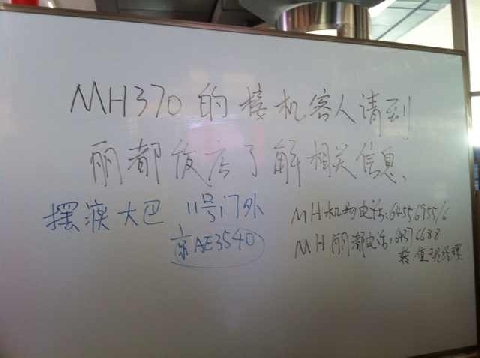 MH370的接机客人请到
丽都饭店了解相关信息、
摆渡大巴 11号门外
京AE3540
MH机场电话:64556955/6
MH丽都电话:
转 值班经理